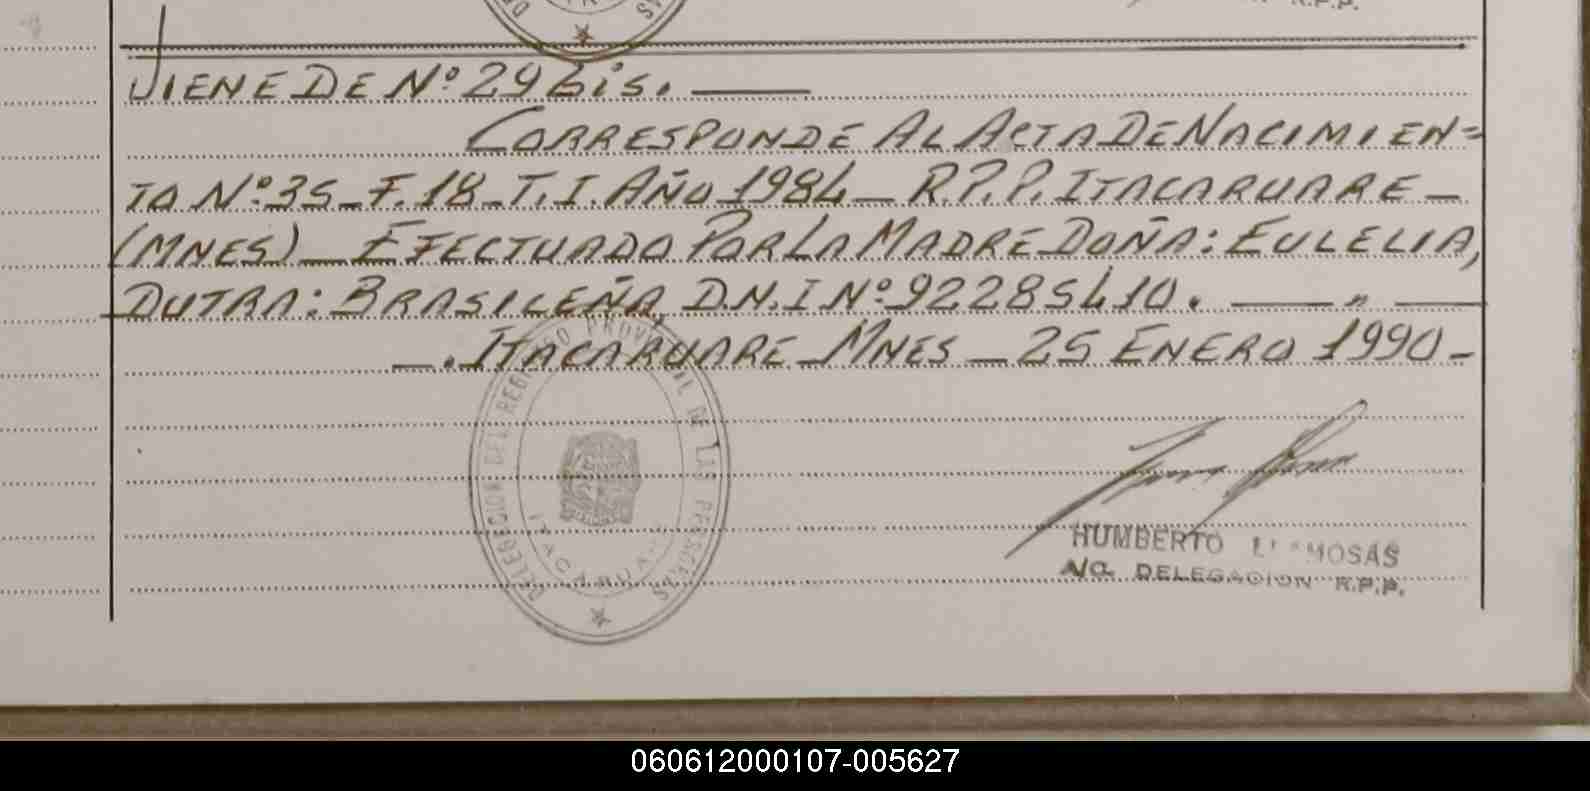 VIENE DE Nº 29 bis. ——
CORRESPONDE AL ACTA DE NACIMIEN=
TO Nº 35 _ F. 18 _ T. I. AÑO 1984 _ R.P.P. ITACARUARE _
(MNES) _ EFECTUADO POR LA MADRE DOÑA: EULELIA,
DUTRA: BRASILEÑA, D.N.I Nº 92285410. —— " ——
_. ITACARUARE _ MNES _ 25 ENERO 1990 _
DELEGACION DEL REGISTRO PROVINCIAL DE LAS PERSONAS
HUMBERTO
A/C. DELEGACION R.P.P.
060612000107-005627